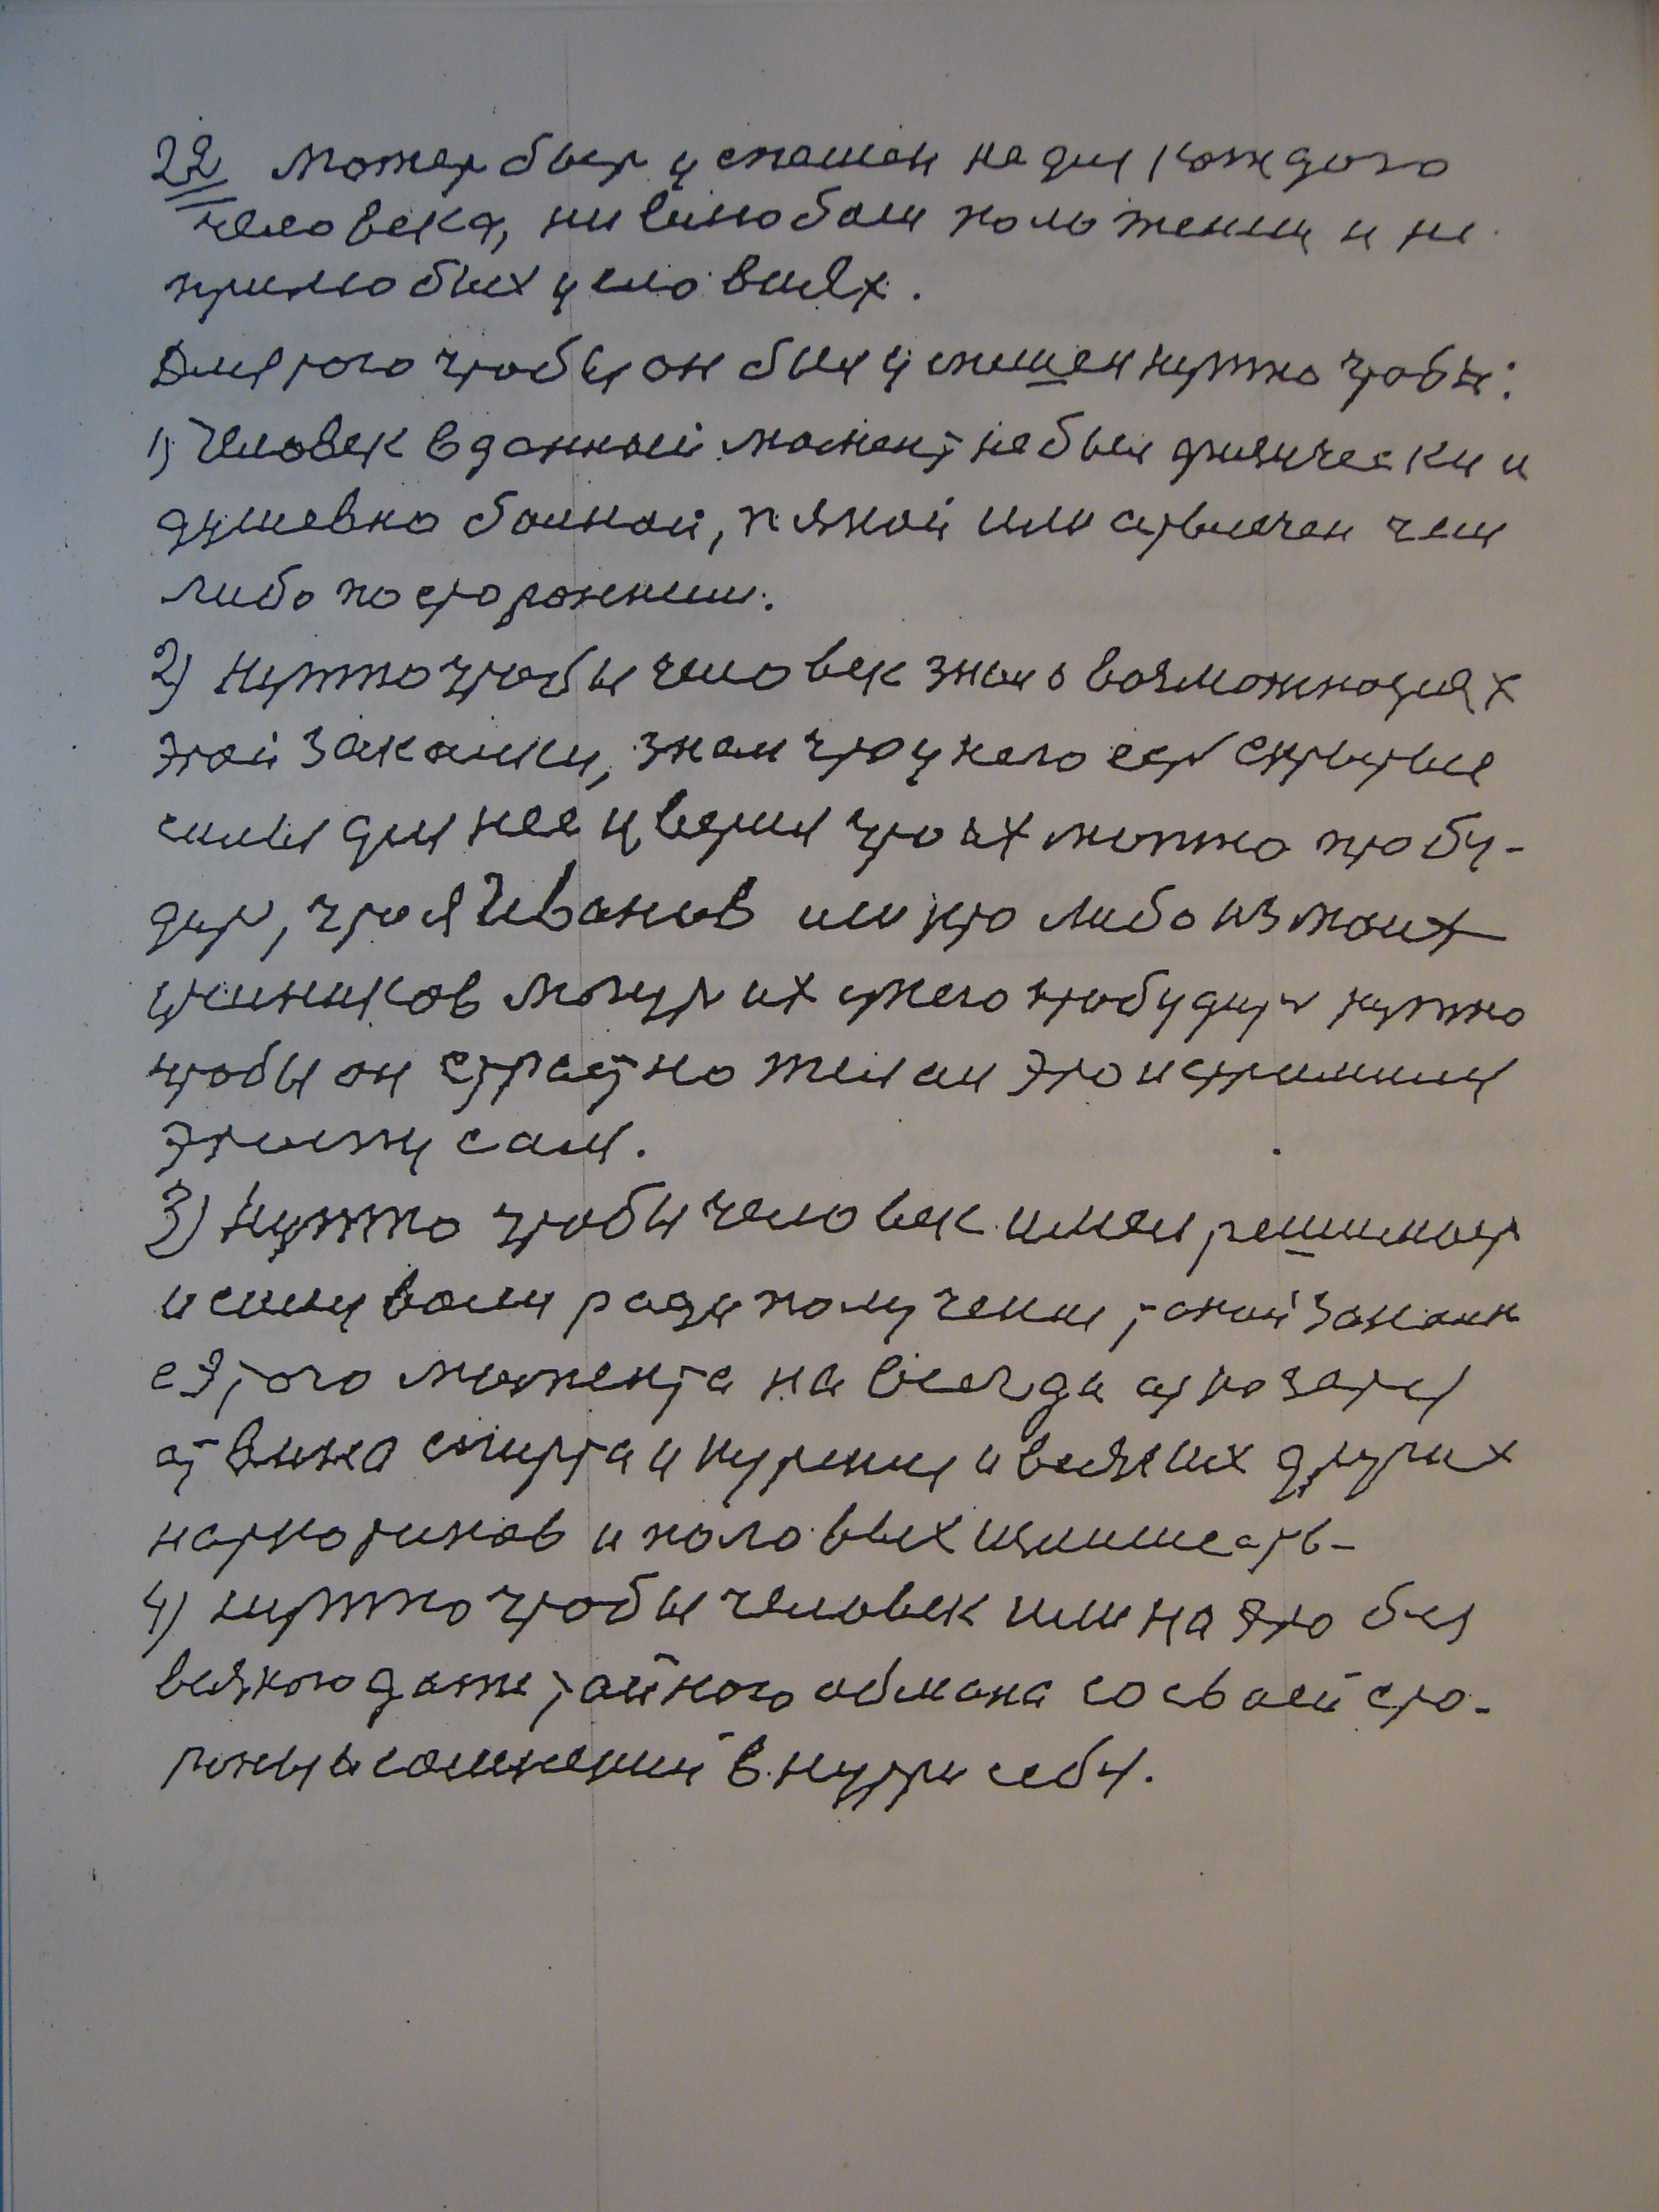 22 Может быт успешен не для каждого
человека, ни влюбом положении и не
прилюбых условиях.
Для того чтобы он был успешен нужно чтобы:
1) Человек вданный момент небыл физически и
душевно болной, пяной или отвлечен чем
либо посторонним.
2) Нужно чтобы человек знал о возможностях
этой закалки, знал что у него ест скрытые
силы для нее и верил что их можно пробу-
дит, что я Иванов или кто либо из моих
учеников могут их у него пробудит нужно
чтобы он страстно желал это и стремился
этому сам.
3) Нужно чтобы человек имел решимост
и силу воли ради получения такой закалки
с этого момента на всегда отказатся
от вина спирта и курения и всяких других
наркотиков и половых излишеств-
4) нужно чтобы человек шел на это без
всякого даже тайного обмана со своей сто-
роны и сомнений внутри себя.